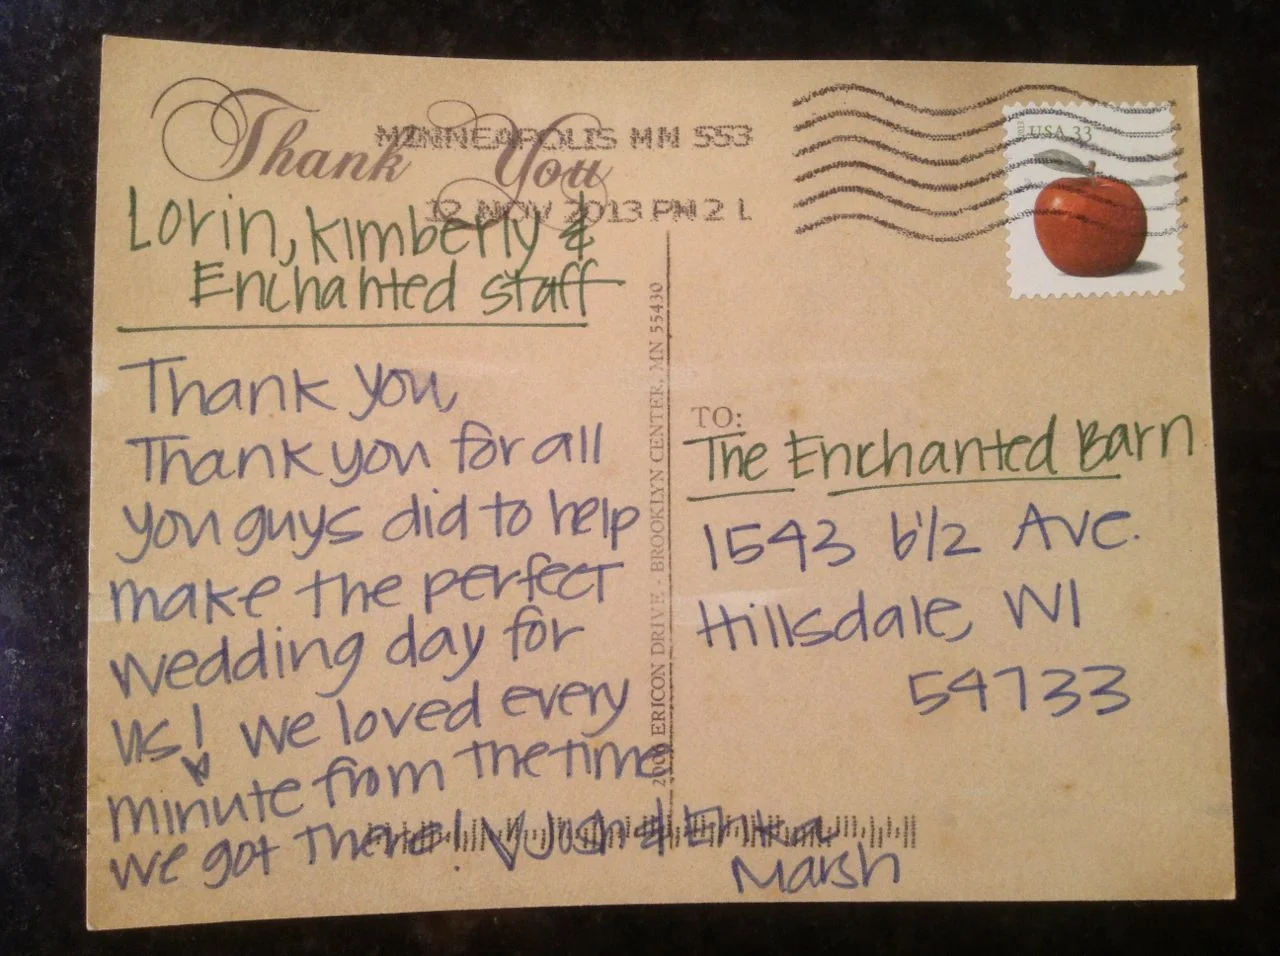 Thank You
MINNEAPOLIS MN 553
12 NOV 2013 PM 2 L
2013
USA 33
Lorin, Kimberly &
Enchanted staff
Thank you,
Thank you for all
you guys did to help
make the perfect
wedding day for
us! We loved every
minute from the time
we got there! Josh & Erika
Marsh
2000 ERICON DRIVE - BROOKLYN CENTER, MN 55430
TO:
The Enchanted Barn
1543 6 1/2 Ave.
Hillsdale, WI
54733